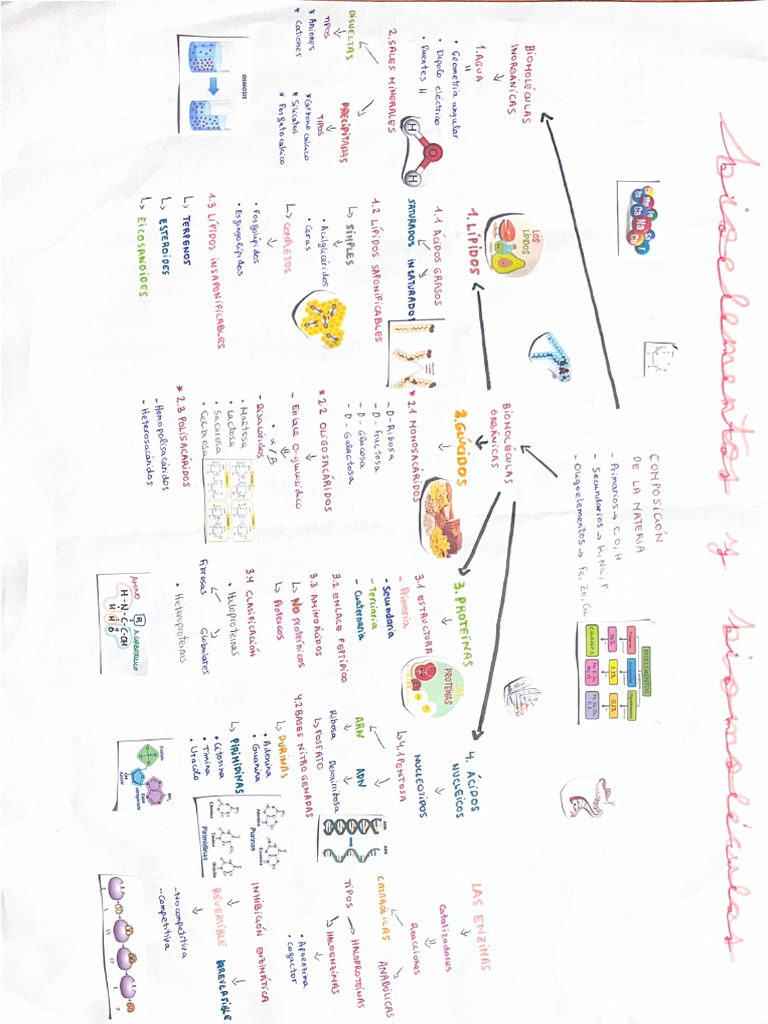 bioelementos y biomoléculas
COMPOSICIÓN
DE LA MATERIA
- Primarios → C, O, H
- Secundarios → K, Na, P
- Oligoelementos → Fe, Zn, Cu
BIOELEMENTOS
BIOMOLÉCULAS
INORGÁNICAS
1. AGUA
• Geometría angular
• Dipolo eléctrico
• Puentes H
H
O
H
2. SALES MINERALES
DISUELTAS
TIPOS
* Aniones
* Cationes
PRECIPITADAS
TIPOS
* Carbonato calcico
* Silicatos
* Fosfato calcico
OSMOSIS
BIOMOLÉCULAS
ORGÁNICAS
1. LÍPIDOS
LOS
LÍPIDOS
1.1 ÁCIDOS GRASOS
SATURADOS INSATURADOS
1.2 LÍPIDOS SAPONIFICABLES
↳ SIMPLES
• Acilglicéridos
• Ceras
↳ COMPLEJOS
• Fosfolípidos
• Esfingolípidos
1.3 LÍPIDOS INSAPONIFICABLES
↳ TERPENOS
↳ ESTEROIDES
↳ EICOSANOIDES
2. GLÚCIDOS
* 2.1 MONOSACÁRIDOS
- D-Ribosa
- D-Fructosa
- D-Glucosa
- D-Galactosa
* 2.2 OLIGOSACÁRIDOS
- Enlace O-glucosídico
• α/β
- Disacáridos
• Maltosa
• Lactosa
• Sacarosa
• Celobiosa
* 2.3 POLISACÁRIDOS
- Homopolisacáridos
- Heterosacáridos
3. PROTEÍNAS
PROTEÍNAS
3.1 ESTRUCTURA
- Primaria
- Secundaria
- Terciaria
- Cuaternaria
3.2 ENLACE PEPTÍDICO
3.3 AMINOÁCIDOS
↳ NO proteínicos
↳ Proteicos
3.4 CLASIFICACIÓN
• Holoproteínas
Fibrosas Globulares
• Heteroproteínas
AMINO R CARBOXILICO
H-N-C-C-OH
H H O
4. ÁCIDOS
NUCLEICOS
NUCLEOTIDOS
↳ 4.1 PENTOSA
ARN ADN
Ribosa Desoxirribosa
↳ FOSFATO
4.2 BASES NITROGENADAS
↳ PURINAS
• Adenina
• Guanina
↳ PIRIMIDINAS
• Citosina
• Timina
• Uracilo
Purinas
Pirimidinas
LAS ENZIMAS
Catalizadores
Reacciones
CATABÓLICAS ANABÓLICAS
TIPOS → HALOPROTEINAS
↳ HALOENZIMAS
• Apoenzima
• Cofactor
INHIBICIÓN ENZIMÁTICA
REVERSIBLE IRREVERSIBLE
- No competitiva
- Competitiva